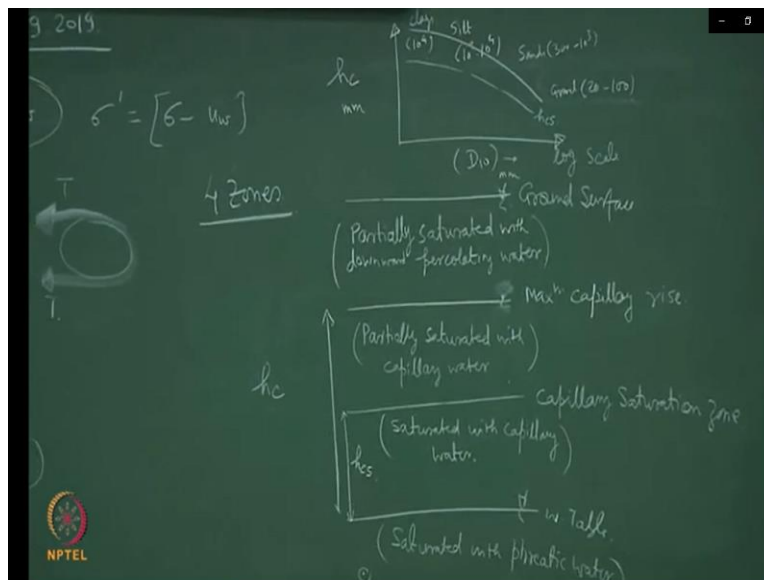 9. 2019.
σ' = [σ - uw]
T
T.
4 Zones
hc
mm
clay
(10⁴)
Silt
(10³-10⁴)
Sands (300-10³)
Gravel (20-100)
hcs
(D10) →
mm
log scale
Ground Surface
(Partially saturated with
downward percolating water)
Maxm capillary rise.
(Partially saturated with
capillary water)
hc
Capillary Saturation Zone
(Saturated with capillary
water.)
hcs
W. Table.
(Saturated with phreatic water)
NPTEL